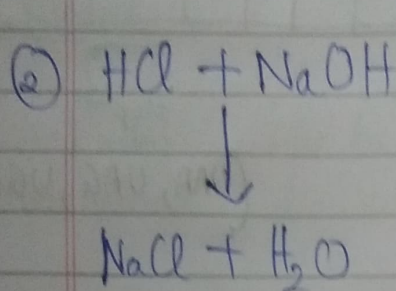 ② HCl + NaOH
↓
NaCl + H₂O